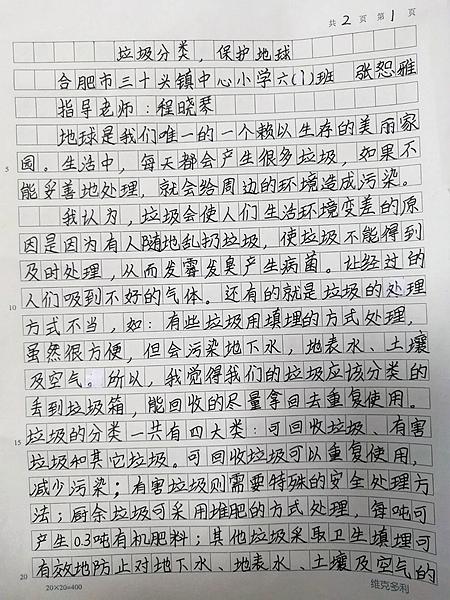 共 2 页 第 1 页
垃圾分类，保护地球
合肥市三十头镇中心小学六(1)班 张恕雅
指导老师：程晓琴
地球是我们唯一的一个赖以生存的美丽家
园。生活中，每天都会产生很多垃圾，如果不
能妥善地处理，就会给周边的环境造成污染。
我认为，垃圾会使人们生活环境变差的原
因是因为有人随地乱扔垃圾，使垃圾不能得到
及时处理，从而发霉发臭产生病菌。让经过的
人们吸到不好的气体。还有的就是垃圾的处理
方式不当，如：有些垃圾用填埋的方式处理，
虽然很方便，但会污染地下水，地表水、土壤
及空气。所以，我觉得我们的垃圾应该分类的
丢到垃圾箱，能回收的尽量拿回去重复使用。
垃圾的分类一共有四大类：可回收垃圾、有害
垃圾和其它垃圾。可回收垃圾可以重复使用，
减少污染；有害垃圾则需要特殊的安全处理方
法；厨余垃圾可采用堆肥的方式处理，每吨可
产生0.3吨有机肥料；其他垃圾采取卫生填埋可
有效地防止对地下水、地表水、土壤及空气的
5
10
15
20
20×20=400
维克多利